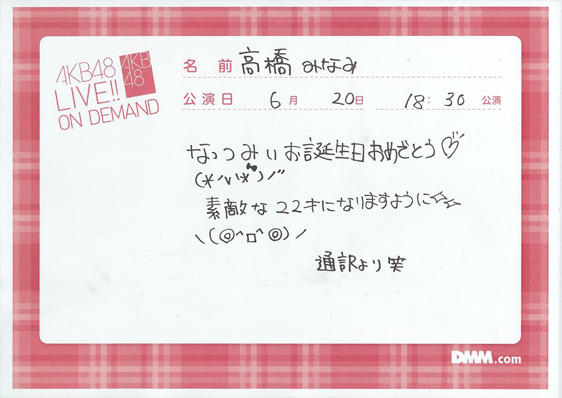 AKB48
LIVE!!
ON DEMAND
AKB
48
名前 高橋みなみ
公演日 6月 20日 18:30 公演
なっつみぃお誕生日おめでとう♡
素敵な22才になりますように☆
\(◎^□^◎)/
通訳より笑
DMM.com